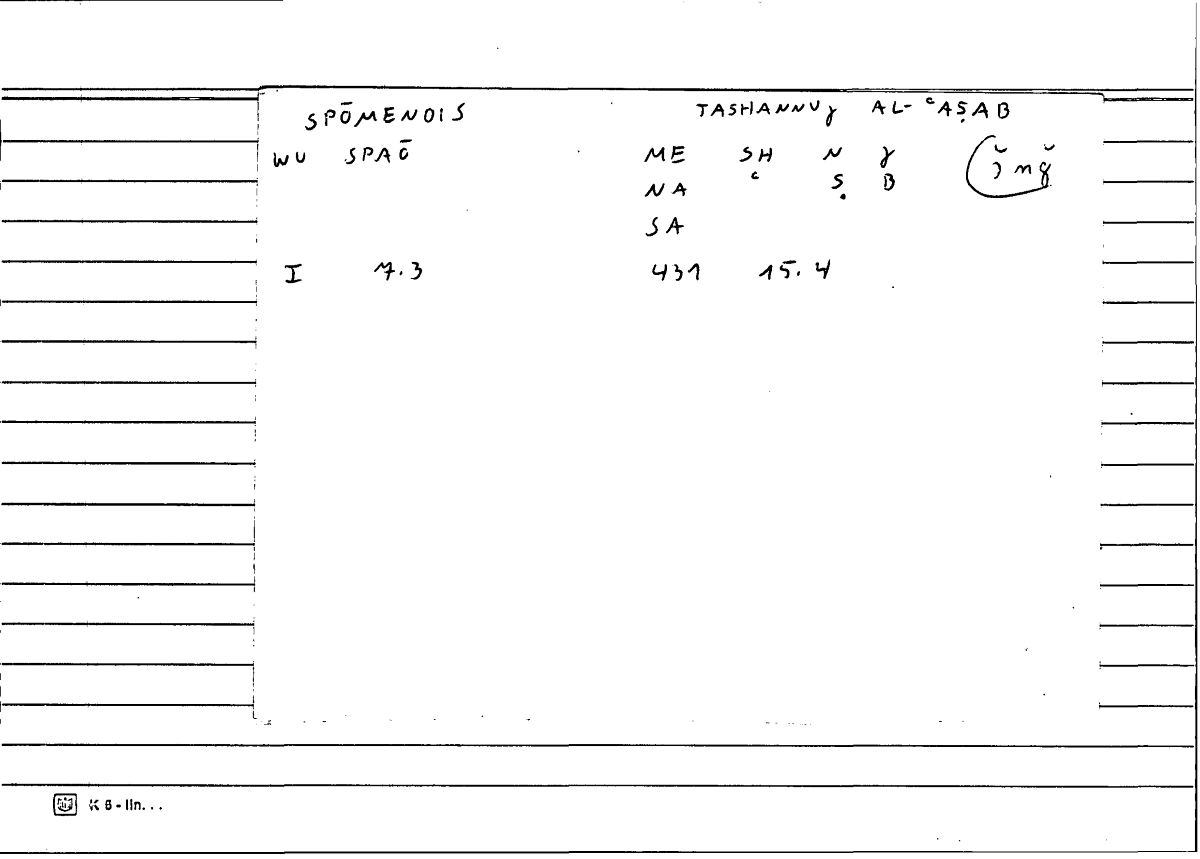 SPŌMENOIS TASHANNUɣ AL-ʿAṢAB
WU SPAŌ ME SH N ɣ
NA ʿ Ṣ B
SA
I 7.3 431 15.4
K 6 - lin...